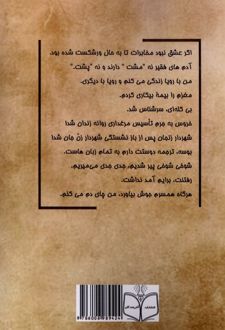 اگر عشق نبود مخابرات تا به حال ورشکست شده بود.
آدم های فقیر نه "مشت" دارند و نه "پشت."
من با رویا زندگی می کنم و رویا با دیگری.
مغزم را بیمهٔ بیکاری کردم.
بی کله‌ای، سرشناس شد.
خروس به جرم تأسیس مرغداری روانه زندان شد!
شهردار زنجان پس از باز نشستگی شهردار زن جان شد!
بوسه، ترجمه دوستت دارم به تمام زبان هاست.
شوخی شوخی پیر شدیم، جدی جدی می‌میریم.
رفتنت، برایم آمد نداشت.
هرگاه همسرم جوش بیاورد، من چای دم می کنم.